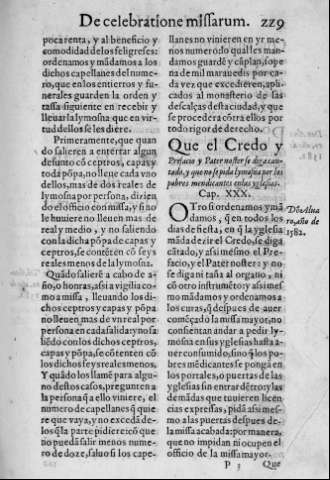 De celebratione missarum. 229
poca renta, y al beneficio y
comodidad de los feligreses:
ordenamos y mãdamos a los
dichos capellanes del nume-
ro, que en los entierros y fu-
nerales guarden la orden y
tassa siguiente en recibir y
lleuar la lymosna que en vir-
tud dellos se les diere.
Primeramente, que quan
do salieren a enterrar algun
defunto cõ ceptros, capas y
toda põpa, no lleue cada vno
dellos, mas de dos reales de
lymosna por persona, dizien
do el officio con missa, y si no
le huuiere no lleuen mas de
real y medio, y no saliendo
con la dicha põpa de capas y
ceptros, se contẽten cõ seys
reales menos de la lymosna.
Quãdo salierẽ a cabo de a-
ño, o honras, assi a vigilia co-
mo a missa, lleuando los di-
chos ceptros y capas y põpa
no lleuen mas de vn real por
persona en cada salida: y no sa
liẽdo con los dichos ceptros,
capas y põpa, se cõtenten cõ
los dichos seys reales menos.
Y quãdo los llamẽ para algu-
no destos casos, pregunten a
la persona q̃ a ello viniere, el
numero de capellanes q̃ quie
re que vaya, y no excedã de-
llos q̃ la parte pidiere: cõ que
no puedã salir menos nume-
ro de doze, saluo si los cape-
llanes no vinieren en yr me-
nos numero: lo qual les man-
damos guardẽ y cũplan, so pe
na de mil marauedis por ca-
da vez que excedieren, apli-
cados al monesterio de las
descalças desta ciudad, y que
se procedera cõtra ellos por
todo rigor de derecho.
Que el Credo y
Prefacio y Pater noster se diga can-
tado, y que no se pida lymosna por los
pobres mendicantes en las yglesias.
Cap. XXX.
OTro si ordenamos y mã
damos, q̃ en todos los
dias de fiesta, en q̃ la yglesia
mãda dezir el Credo, se diga
cãtado, y assi mesmo el Pre-
facio, y el Pater noster: y no
se diga ni taña al organo, ni
cõ otro instrumẽto: y assi mes
mo mãdamos y ordenamos a
los curas, q̃ despues de auer
començado la missa mayor, no
consientan andar a pedir ly-
mosna en sus yglesias hasta a-
uer consumido, sino q̃ los po-
bres mẽdicates se pongã en
los portales, o puertas de las
yglesias sin entrar dẽtro: y las
demãdas que tuuieren licen
cias expressas, pidã assi mes-
mo a las puertas despues de
la missa acabada: por manera,
que no impidan ni ocupen el
officio de la missa mayor.
P 3 Que
Dõ Alua
ro, año de
1582.